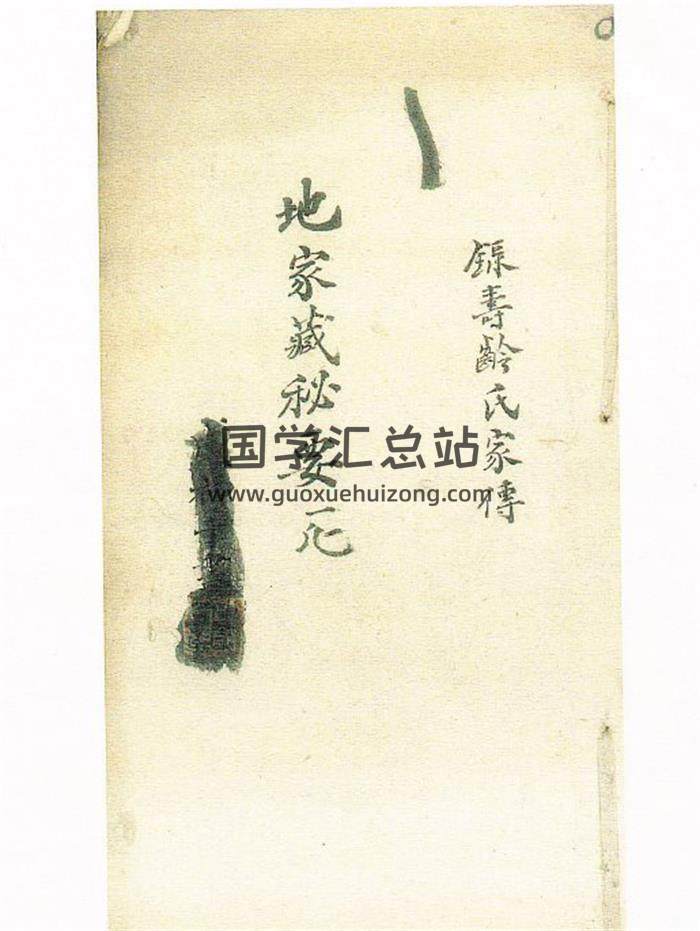 録壽齡氏家傳
地家藏秘
国学汇总站
www.guoxuehuizong.com